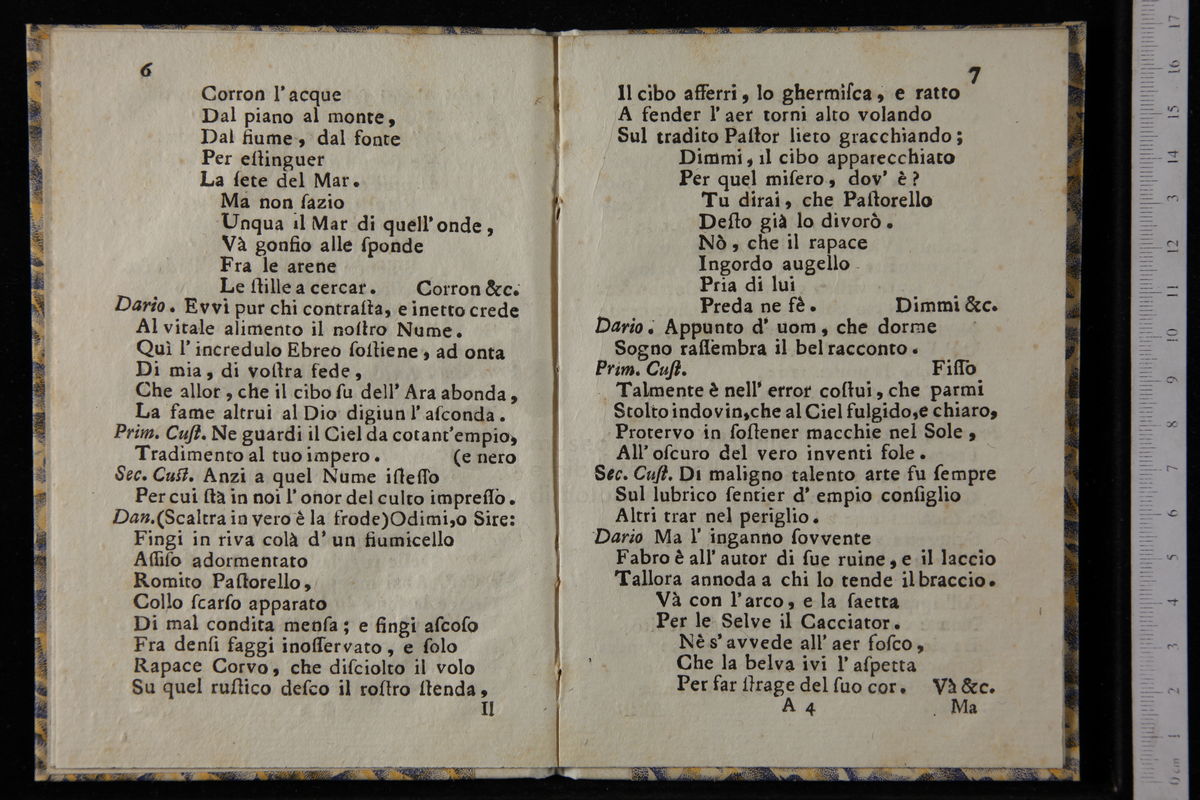 6
Corron l'acque
Dal piano al monte,
Dal fiume, dal fonte
Per eſtinguer
La ſete del Mar.
Ma non ſazio
Unqua il Mar di quell'onde,
Và gonfio alle ſponde
Fra le arene
Le ſtille a cercar. Corron &c.
Dario. Evvi pur chi contraſta, e inetto crede
Al vitale alimento il noſtro Nume.
Quì l'incredulo Ebreo ſoſtiene, ad onta
Di mia, di voſtra fede,
Che allor, che il cibo ſu dell'Ara abonda,
La fame altrui al Dio digiun l'aſconda.
Prim. Cuſt. Ne guardi il Ciel da cotant'empio,
Tradimento al tuo impero. (e nero
Sec. Cuſt. Anzi a quel Nume iſteſſo
Per cui ſtà in noi l'onor del culto impreſſo.
Dan. (Scaltra in vero è la frode) Odimi, o Sire:
Fingi in riva colà d'un fiumicello
Aſſiſo adormentato
Romito Paſtorello,
Collo ſcarſo apparato
Di mal condita menſa; e fingi aſcoſo
Fra denſi faggi inoſſervato, e ſolo
Rapace Corvo, che diſciolto il volo
Su quel ruſtico deſco il roſtro ſtenda,
Il
7
Il cibo afferri, lo ghermiſca, e ratto
A fender l'aer torni alto volando
Sul tradito Paſtor lieto gracchiando;
Dimmi, il cibo apparecchiato
Per quel miſero, dov'è?
Tu dirai, che Paſtorello
Deſto già lo divorò.
Nò, che il rapace
Ingordo augello
Pria di lui
Preda ne fè. Dimmi &c.
Dario. Appunto d'uom, che dorme
Sogno raſſembra il bel racconto.
Prim. Cuſt. Fiſſo
Talmente è nell'error coſtui, che parmi
Stolto indovin, che al Ciel fulgido, e chiaro,
Protervo in ſoſtener macchie nel Sole,
All'oſcuro del vero inventi fole.
Sec. Cuſt. Di maligno talento arte fu ſempre
Sul lubrico ſentier d'empio conſiglio
Altri trar nel periglio.
Dario Ma l'inganno ſovvente
Fabro è all'autor di ſue ruine, e il laccio
Tallora annoda a chi lo tende il braccio.
Và con l'arco, e la ſaetta
Per le Selve il Cacciator.
Nè s'avvede all'aer foſco,
Che la belva ivi l'aſpetta
Per far ſtrage del ſuo cor. Và &c.
A 4 Ma
0 cm 1 2 3 4 5 6 7 8 9 10 11 12 3 14 15 16 17